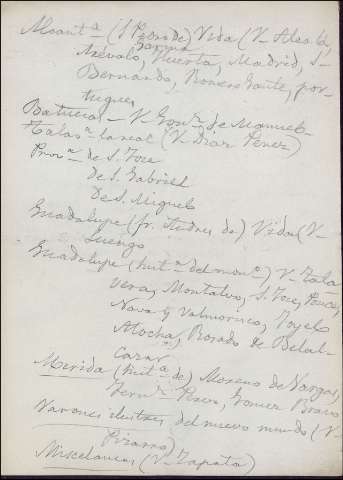 Alcantª (S. Pedro de) Vida (V- Alcalá,
Barrena
Arévalo, Huerta, Madrid, S-
Bernardo, Romero Gaite, por-
tugues
Batuecas - V- Gonz. de Manuel-
(V- Diaz Perez)
Provª de S. Jose
De S. Gabriel
De S. Miguel
Guadalupe (fr. Andres de) Vida (V-
Luengo
Guadalupe (histª del monº) V. Tala-
vera, Montalvo, S. Jose, Ponce,
Nava y Valmorisco, Toyelo
Atocha, Rosado de Belal-
cazar
Merida (histª de) Moreno de Vargas,
Fernz Perez, Gomez Bravo
Varones ilustres del nuevo mundo (V-
Pizarro)
Miscelanea (V- Zapata)